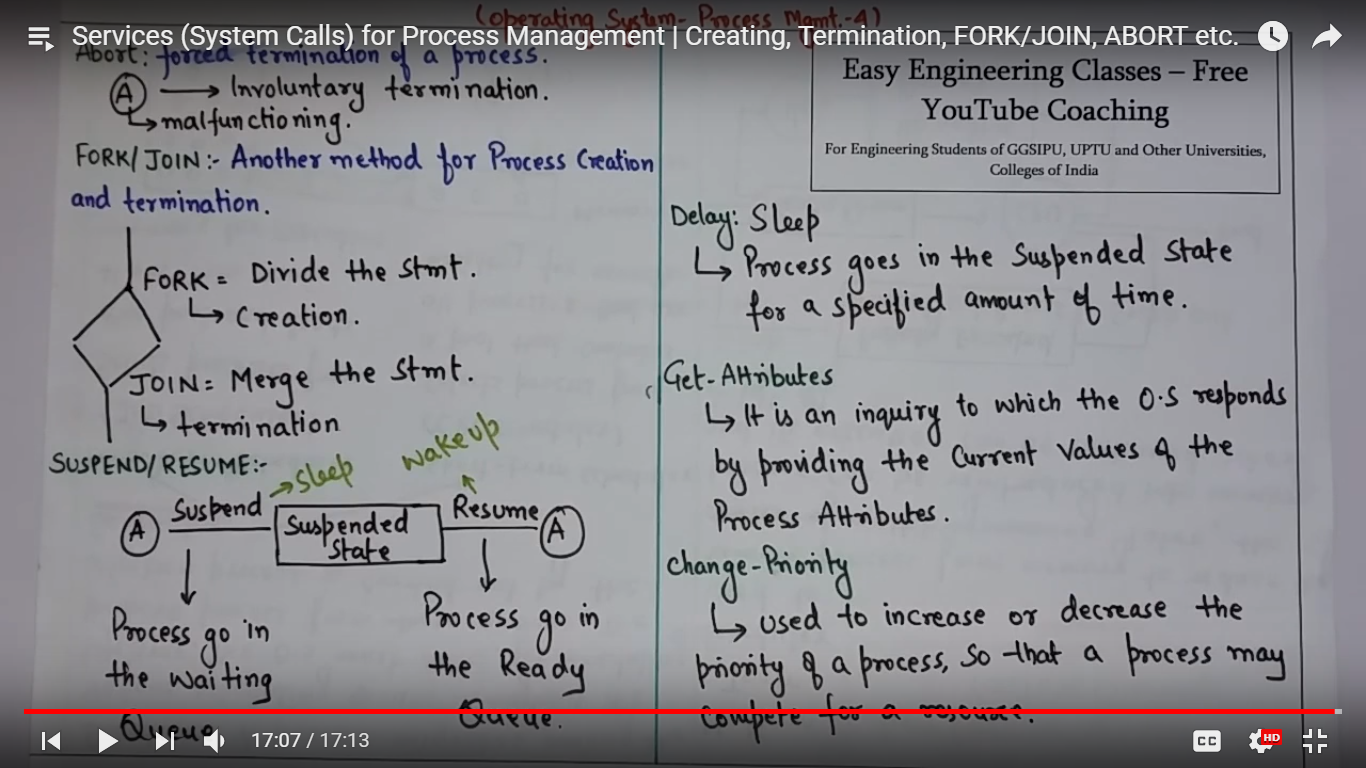 (Operating System- Process Mgmt.-4)
Services (System Calls) for Process Management | Creating, Termination, FORK/JOIN, ABORT etc.
Abort: forced termination of a process.
A → Involuntary termination.
↳ malfunctioning.
FORK/JOIN:- Another method for Process Creation
and termination.
FORK = Divide the Stmt.
↳ Creation.
JOIN = Merge the Stmt.
↳ termination
SUSPEND/RESUME:-
→ Sleep
wakeup
A Suspend Suspended State Resume A
Process go in
the waiting
Queue
Process go in
the Ready
Queue.
Easy Engineering Classes – Free
YouTube Coaching
For Engineering Students of GGSIPU, UPTU and Other Universities,
Colleges of India
Delay: Sleep
↳ Process goes in the Suspended State
for a specified amount of time.
Get-Attributes
↳ It is an inquiry to which the O.S responds
by providing the Current Values of the
Process Attributes.
Change-Priority
↳ used to increase or decrease the
priority of a process, so that a process may
compete for a resource.
17:07 / 17:13
CC
HD